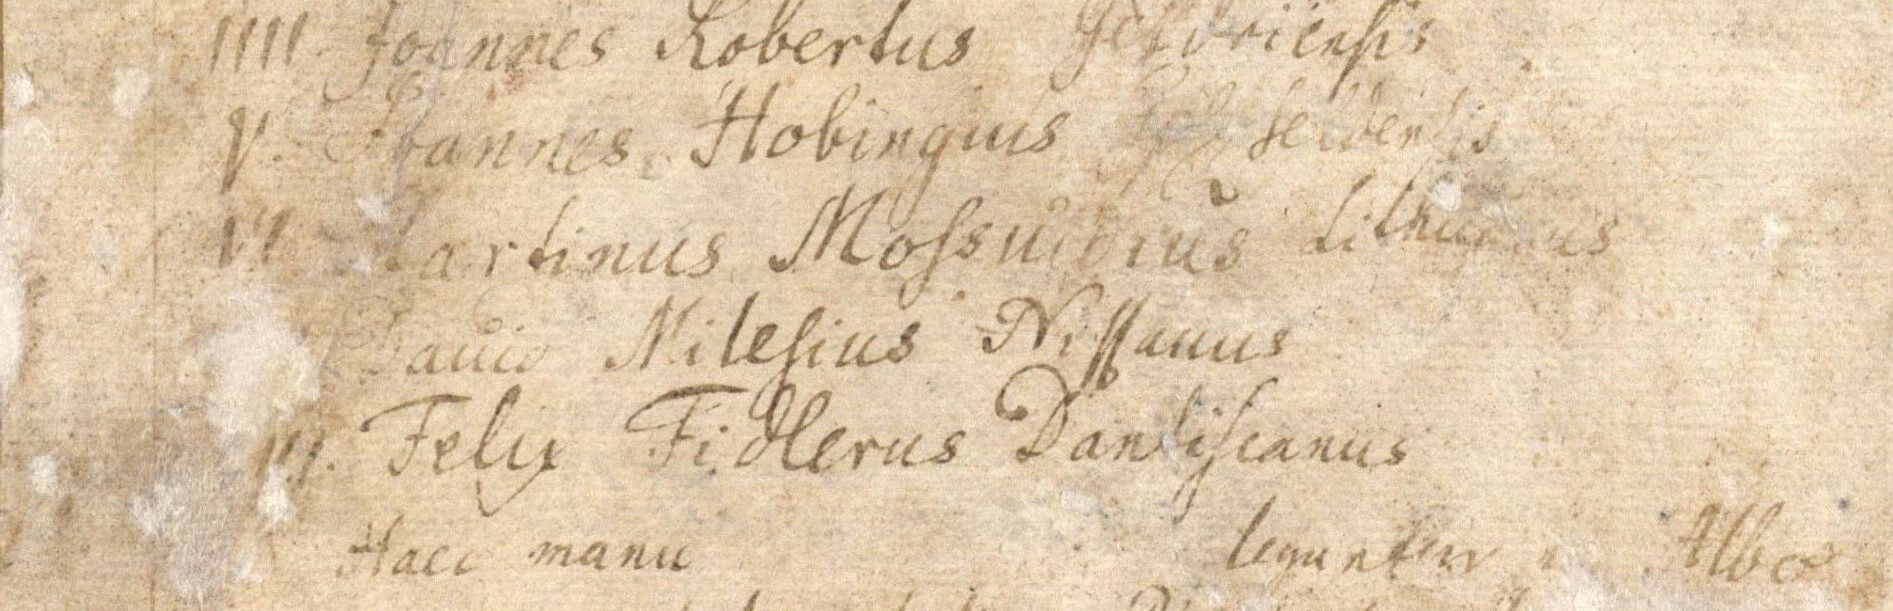 IIII Joannes Robertus
V. Joannes Hobingius
VI Martinus Mossuidius Lithuanus
Dauid Milesius Nissanus
III. Felix Fidlerus Dantiscanus
Haec manu leguntur Albo